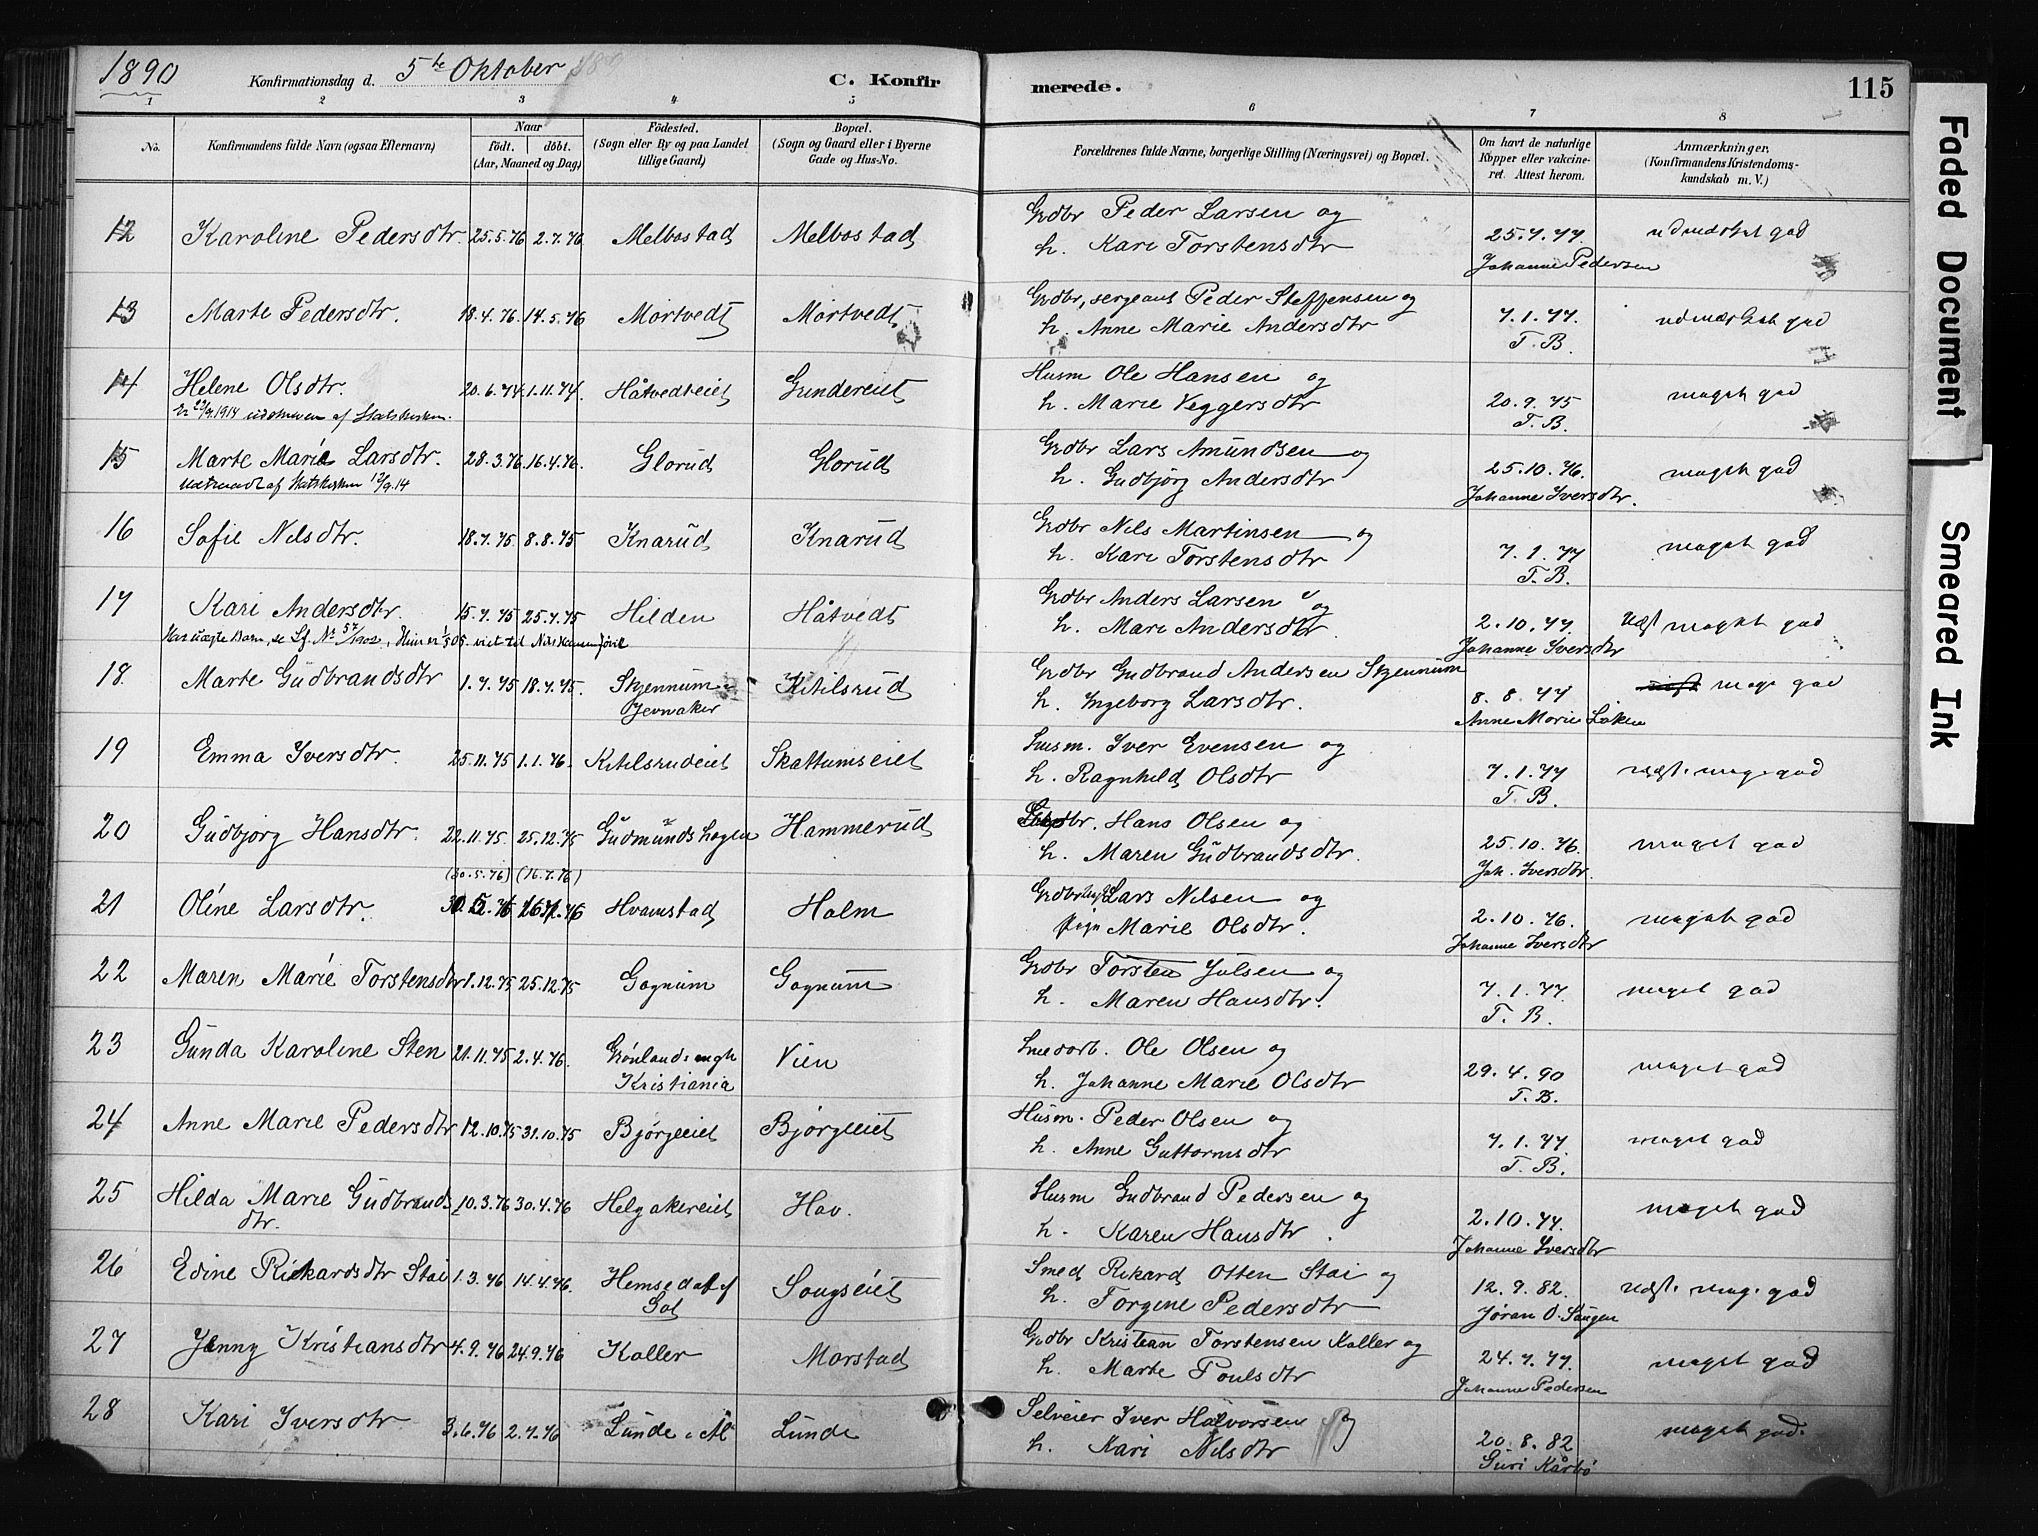 1890
Konfirmationsdag d. 5te Oktober
C. Konfirmerede.
115
1 2 3 4 5 6 7 8
No.
Konfirmandens fulde Navn (ogsaa Efternavn)
Naar
födt. döbt.
(Aar, Maaned og Dag)
Födested.
(Sogn eller By og paa Landet tillige Gaard)
Bopæl.
(Sogn og Gaard eller i Byerne Gade og Hus-No.
Forældrenes fulde Navne, borgerlige Stilling (Næringsvei) og Bopæl.
Om havt de naturlige Kopper eller vaccineret. Attest herom.
Anmærkninger,
(Konfirmandens Kristendomskundskab m. V.)
12 Karoline Pedersdtr. 25.5.76 2.7.76 Melbostad Melbostad Grdbr Peder Larsen og
h. Kari Torstensdtr 25.7.77. Johanne Pedersen udmærket god
13 Marte Pedersdtr. 18.4.76. 14.5.76 Mortvedt Mortvedt Grdbr, sergeant Peder Steffensen og
h. Anne Marie Andersdtr 7.1.77. T.B. udmærket god
14 Helene Olsdtr. 20.6.74 1.11.74. Håtvedteiet Grindereiet Husm Ole Hansen og
h. Marie Veggersdtr 20.9.75 T.B. meget god
15 Marte Marie Larsdtr. 28.3.76 16.4.76. Glorud Glorud Grdbr Lars Amundsen og
Udtraadt af Statskirken 12/9.14
h. Gudbjørg Andersdtr 25.10.76. Johanne Iversdtr. meget god
16 Sofie Nilsdtr. 18.7.75 8.8.75 Knarud Knarud Grdbr Nils Martinsen og
h. Kari Torstensdtr 7.1.77 T.B. meget god
17 Kari Andersdtr. 15.7.75 25.7.75 Hilden Håtvedt Grdbr Anders Larsen og
h. Mari Andersdtr. 2.10.77. Johanne Iversdtr næst meget god
18 Marte Gudbrandsdtr 1.7.75 18.7.75. Skjennum Jevnaker Ketilsrud Grdbr Gudbrand Andersen Skjennum
h. Ingeborg Larsdtr. 8.8.77 Anne Marie Løken meget god
19 Emma Iversdtr. 25.11.75 1.1.76. Ketilsrudeiet Skattumseiet Husm. Iver Evensen og
h. Ragnhild Olsdtr 7.1.77 T.B. næst. meg. god
20 Gudbjørg Hansdtr. 22.11.75. 25.12.75 Gudmundshagen Hammerud Grdbr. Hans Olsen og
h. Maren Gudbrandsdtr. 25.10.76. Joh. Iversdtr. meget god
(30.5.76) (16.7.76)
21 Oline Larsdtr. 30.5.76 16.7.76 Hvamstad Holm Grdbr Lars Nilsen og
Pige Marie Olsdtr. 2.10.76. Johanne Iversdtr meget god
22 Maren Marie Torstensdtr 1.12.75 25.12.75 Gognum Gognum Grdbr Torsten Julsen og
h. Maren Hansdtr. 7.1.77. T.B. meget god
23 Gunda Karoline Sten 21.11.75 2.4.76. Grønlands mgh Kristiania Vien Smedarb. Ole Olsen og
h. Johanne Marie Olsdtr 29.4.90 T.B. meget god
24 Anne Marie Pedersdtr 12.10.75 31.10.75 Bjørgeeiet Bjørgeeiet Husm. Peder Olsen og
h. Anne Guttormsdtr 7.1.77. T.B. meget god
25 Hilda Marie Gudbrandsdtr. 10.3.76 30.4.76 Helgakereiet Hov. Husm Gudbrand Pedersen og
h. Karen Hansdtr. 2.10.77. Johanne Iversdtr meget god
26 Edine Rikardsdtr Stai 1.3.76 14.4.76. Hemsedal af Gol Sougseiet Smed Rikard Otten Stai og
h. Torgine Pedersdtr 12.9.82. Jøran O. Saugen næst. meg. god
27 Jenny Kristiansdtr 4.9.76 24.9.76 Koller Morstad Grdbr Kristian Torstensen Koller og
h. Marte Poulsdtr 24.7.77. Johanne Pedersen meget god
28 Kari Iversdtr 3.6.76 2.7.76 Lunde i Al Lunde Selveier Iver Halvorsen og
h. Kari Nilsdtr 20.8.82 Guri Kårbø meget god.
Faded Document
Smeared Ink